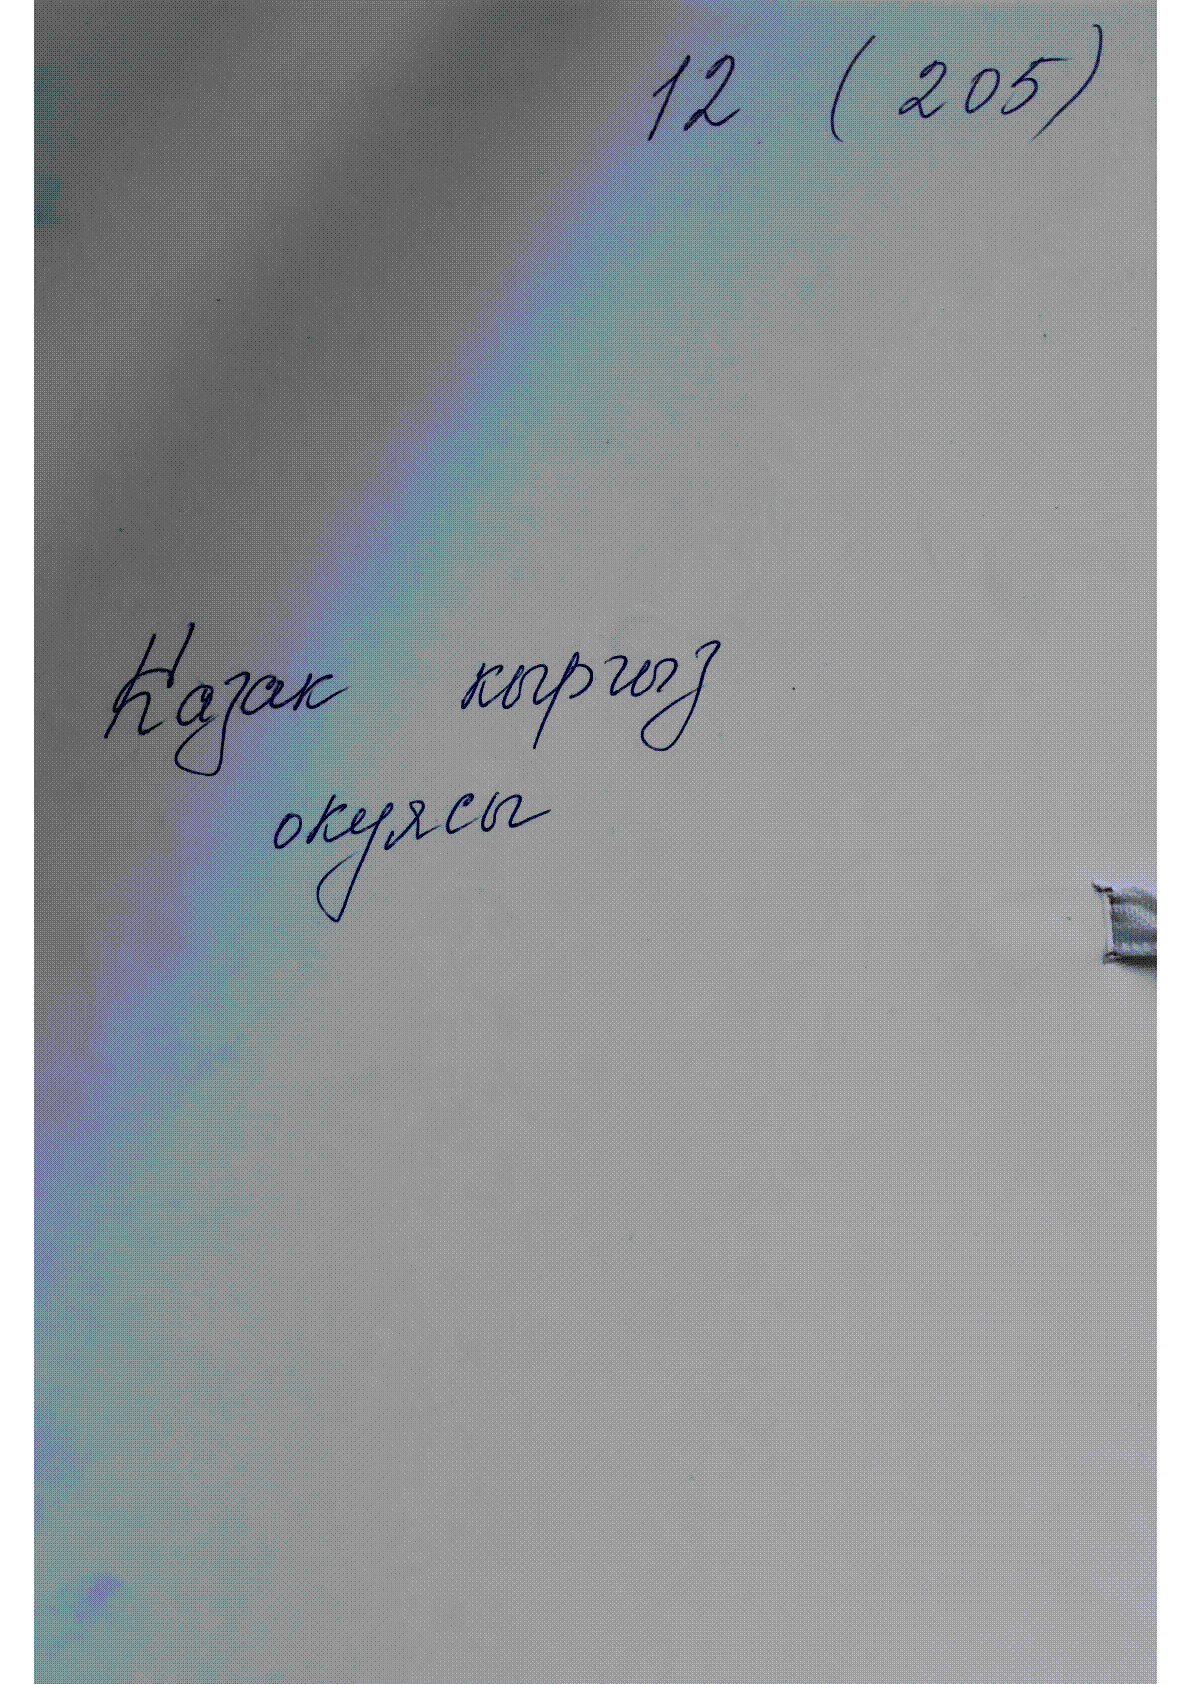 12 (205)
Казак кыргыз
окуясы